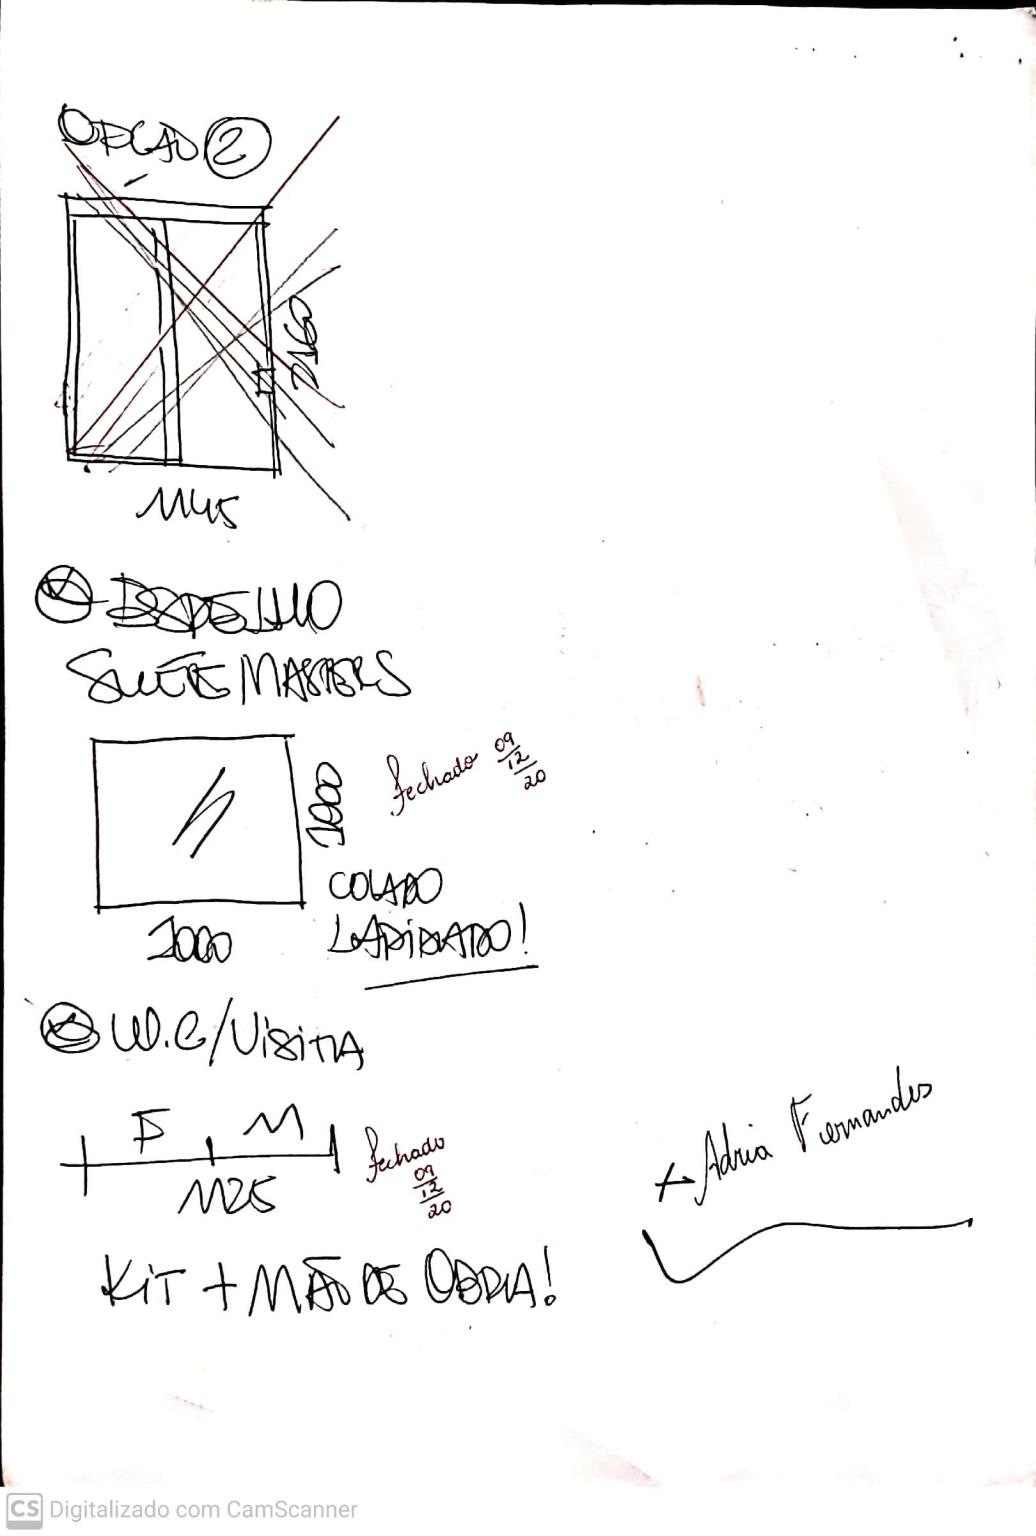 OPÇÃO 2
2160
1145
ESPELHO
SUÍTE MASTERS
fechado 09/12/20
1000
COLADO
1000
LAPIDADO!
W.C/VISITA
F M
fechado 09/12/20
1125
+ Adria Fernandes
KIT + MÃO DE OBRA!
CS Digitalizado com CamScanner